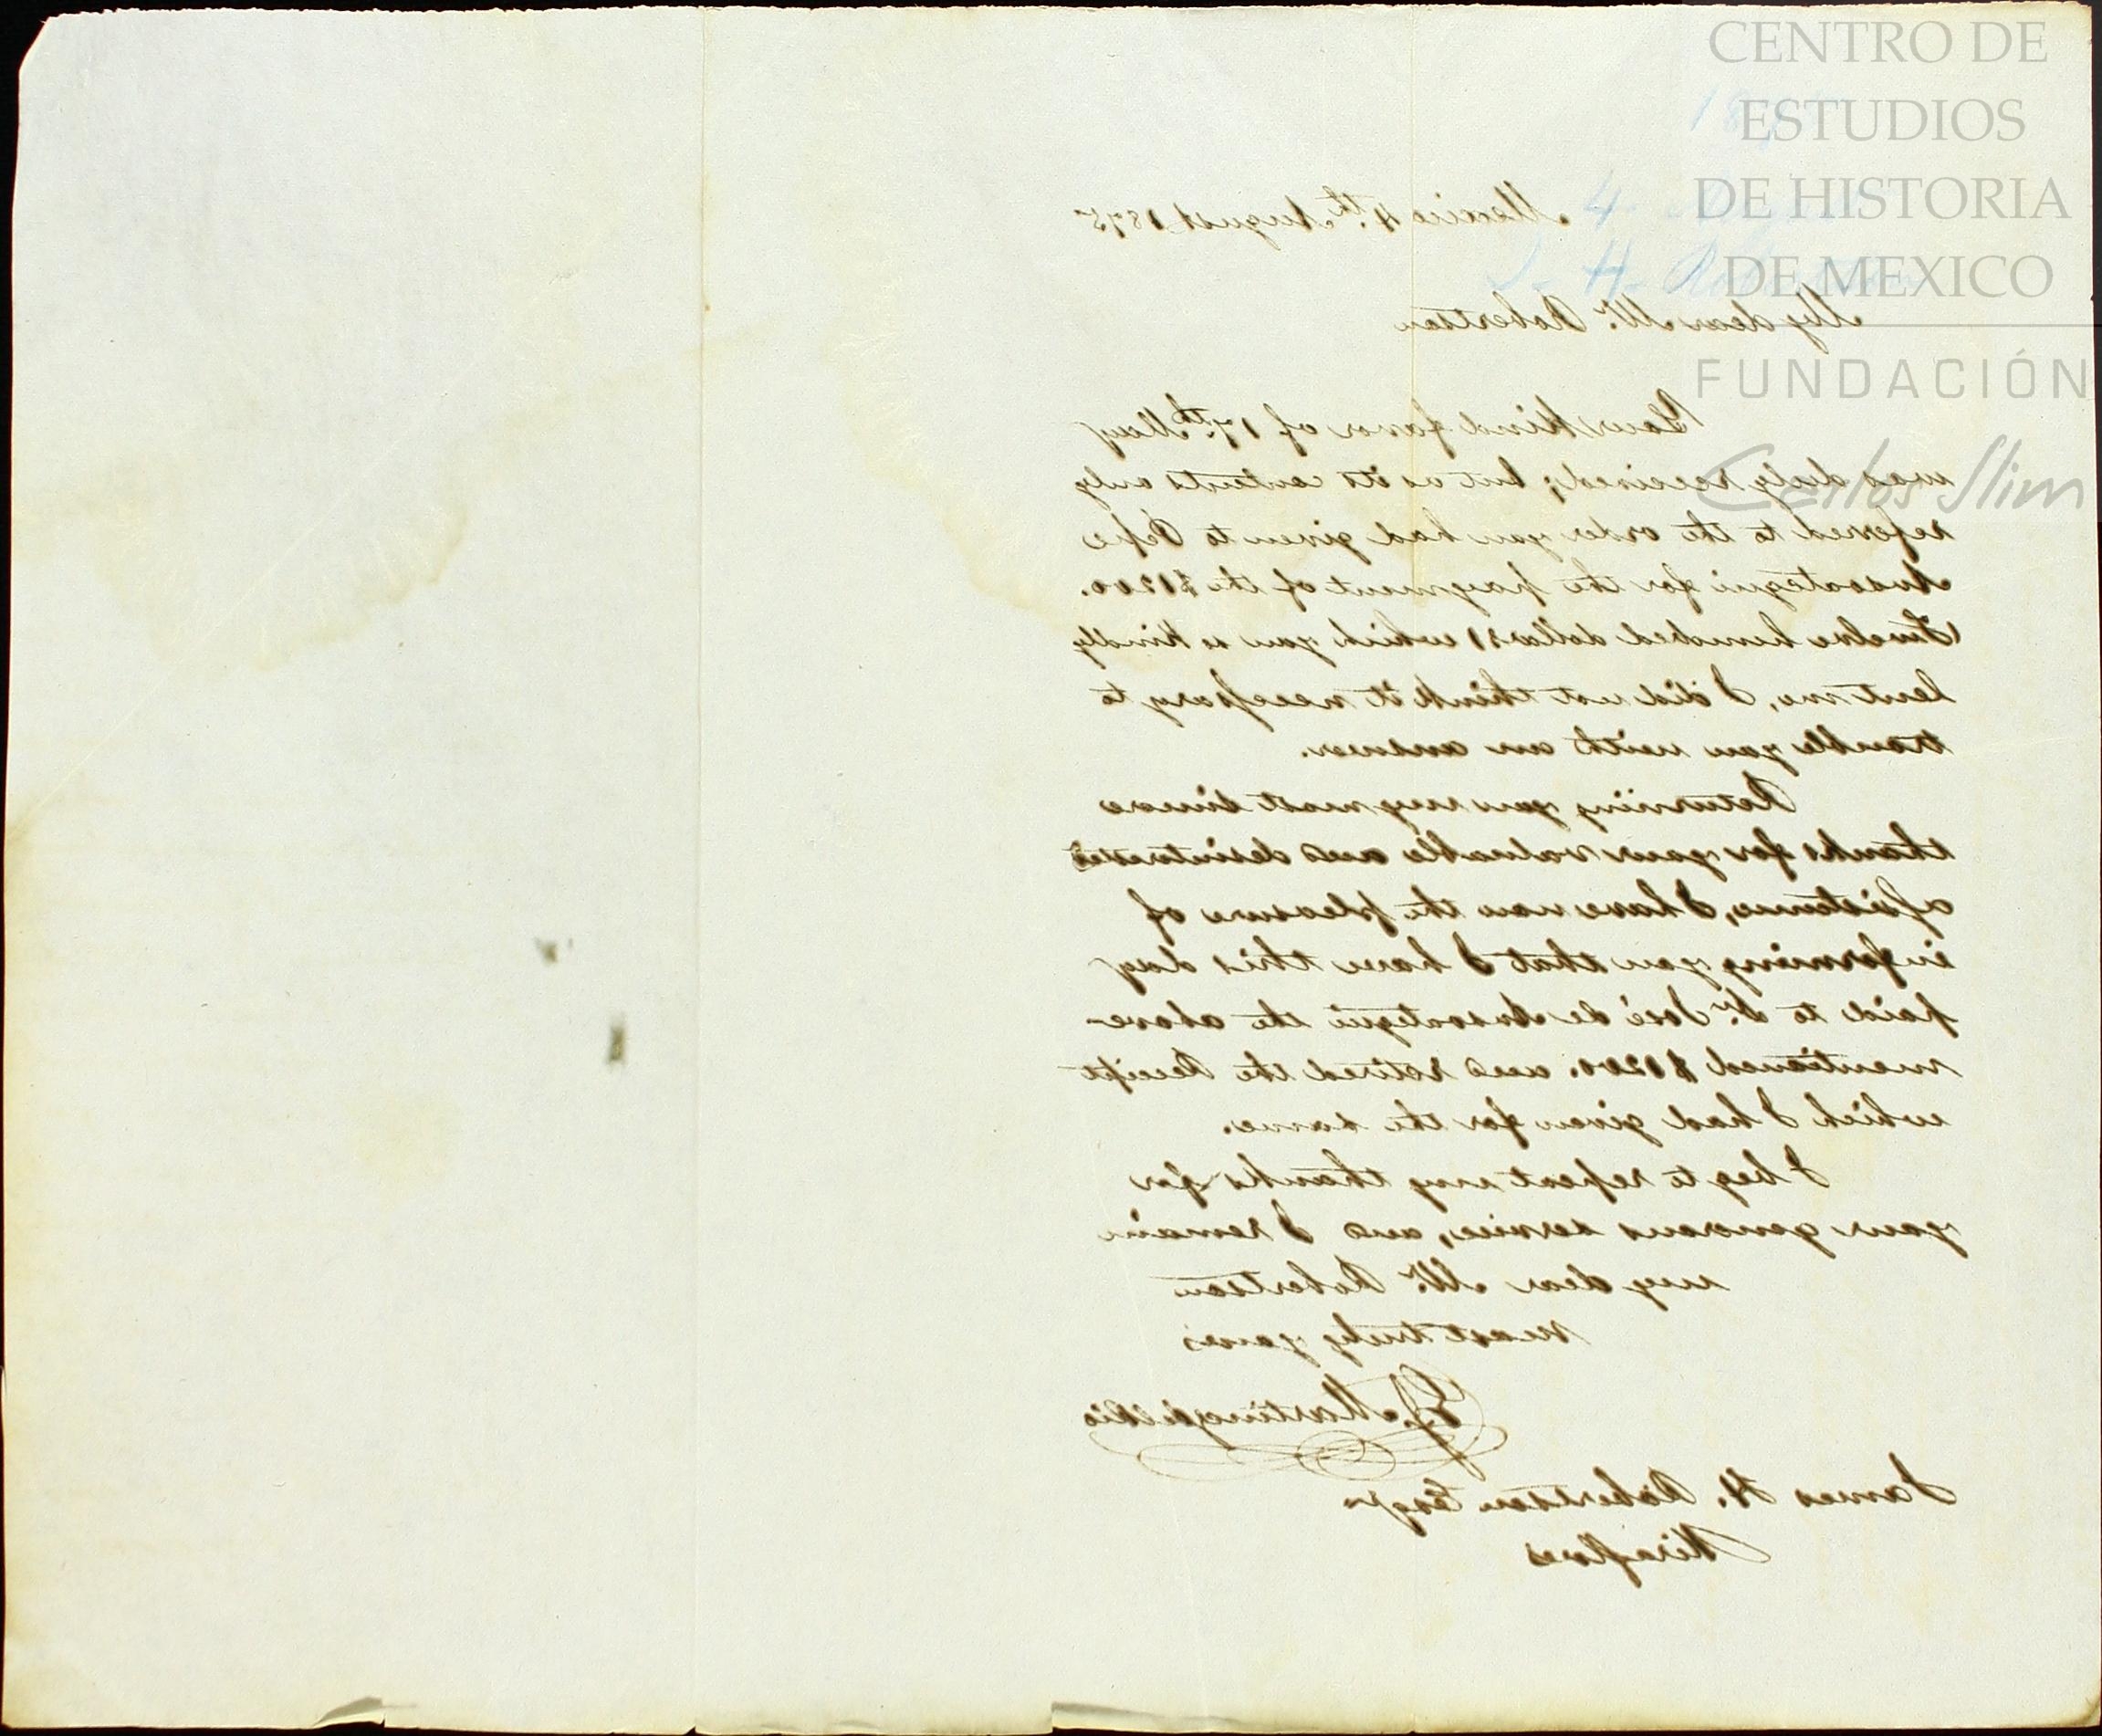 CENTRO DE
ESTUDIOS
DE HISTORIA
DE MEXICO
FUNDACIÓN
Carlos Slim
4
J. H. Robertson
Mexico 4th. August 1875
My dear Mr. Robertson
Your kind favor of 17th. May
was duly received; but as its contents only
referred to the order you had given to Pepe
Ansoategui for the payment of the $1200.
(Twelve hundred dollars) which you so kindly
lent me, I did not think it necessary to
trouble you with an answer.
Returning you my most sincere
thanks for your valuable and desinterested
assistance, I have now the pleasure of
informing you that I have this day
paid to Sr. José de Ansoategui the above-
mentioned $1200. and retired the Receipt
which I had given for the same.
I beg to repeat my thanks for
your generous service, and I remain
my dear Mr. Robertson
most truly yours
James H. Robertson Esqre
Miraflores